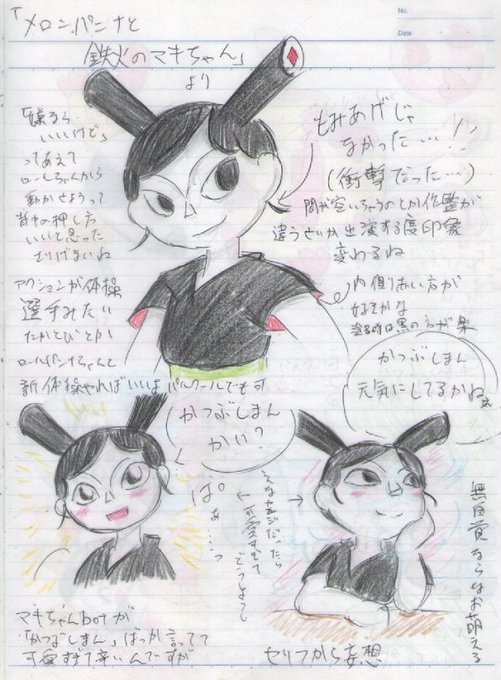 「メロンパンナと
鉄火のマキちゃん」
より
No.
Date
もみあげじゃ
なかった…!!
(衝撃だった…)
間が空いちゃうのとか作監が
違うせいか出演する度印象
変わるね
「嫌なら
いいけど」
ってあえて
ロールちゃんから
動かせようって
背中の押し方
いいと思った
さりげないね
アクションが体操
選手みたい
たかとびとか
ロールパンナちゃんと
新体操やればいいじゃん パルクールでも可
内側赤い方が
好きかな
塗る時は黒の方が楽
かつぶしまん
かい?
かつぶしまん
元気にしてるかねぇ
ぱ。
ぁ…っ
→
こんな声だったら
可愛すぎて
どうしよう
無自覚ならなお萌える
マキちゃんbotが
「かつぶしまん」ばっか言ってて
可愛すぎて辛いんですが
セリフから妄想